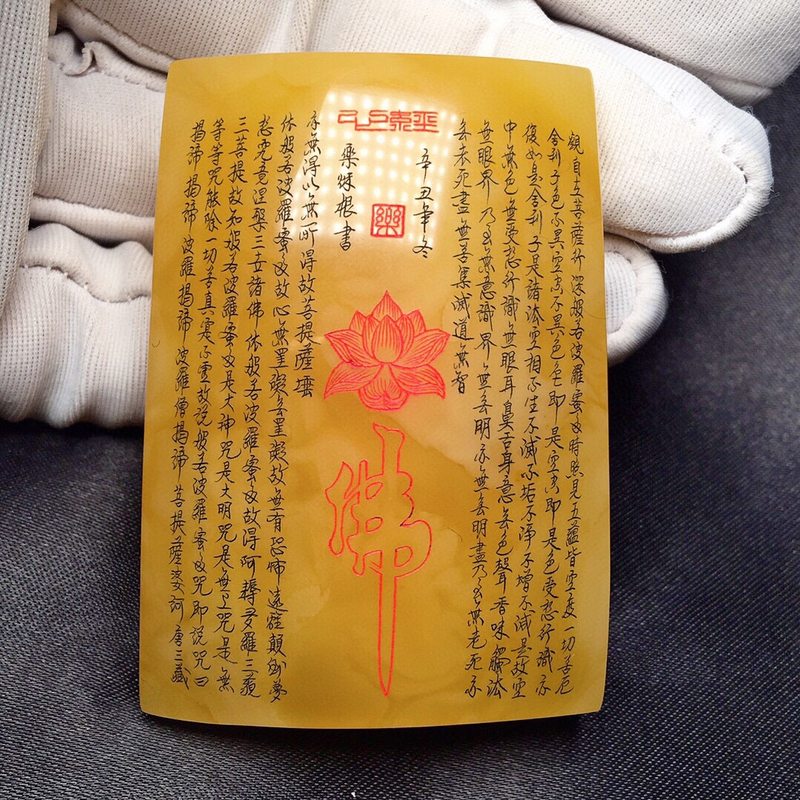 觀自在菩薩行深般若波羅蜜多時照見五蘊皆空度一切苦厄
舍利子色不異空空不異色色即是空空即是色受想行識亦
復如是舍利子是諸法空相不生不滅不垢不淨不增不減是故空
中無色無受想行識無眼耳鼻舌身意無色聲香味觸法
無眼界乃至無意識界無無明亦無無明盡乃至無老死亦
無老死盡無苦集滅道無智
辛丑年冬
樂
根書
佛
亦無得以無所得故菩提薩埵
依般若波羅蜜多故心無罣礙無罣礙故無有恐怖遠離顛倒夢
想究竟涅槃三世諸佛依般若波羅蜜多故得阿耨多羅三藐
三菩提故知般若波羅蜜多是大神咒是大明咒是無上咒是無
等等咒能除一切苦真實不虛故說般若波羅蜜多咒即說咒曰
揭諦揭諦波羅揭諦波羅僧揭諦菩提薩婆訶唐三藏